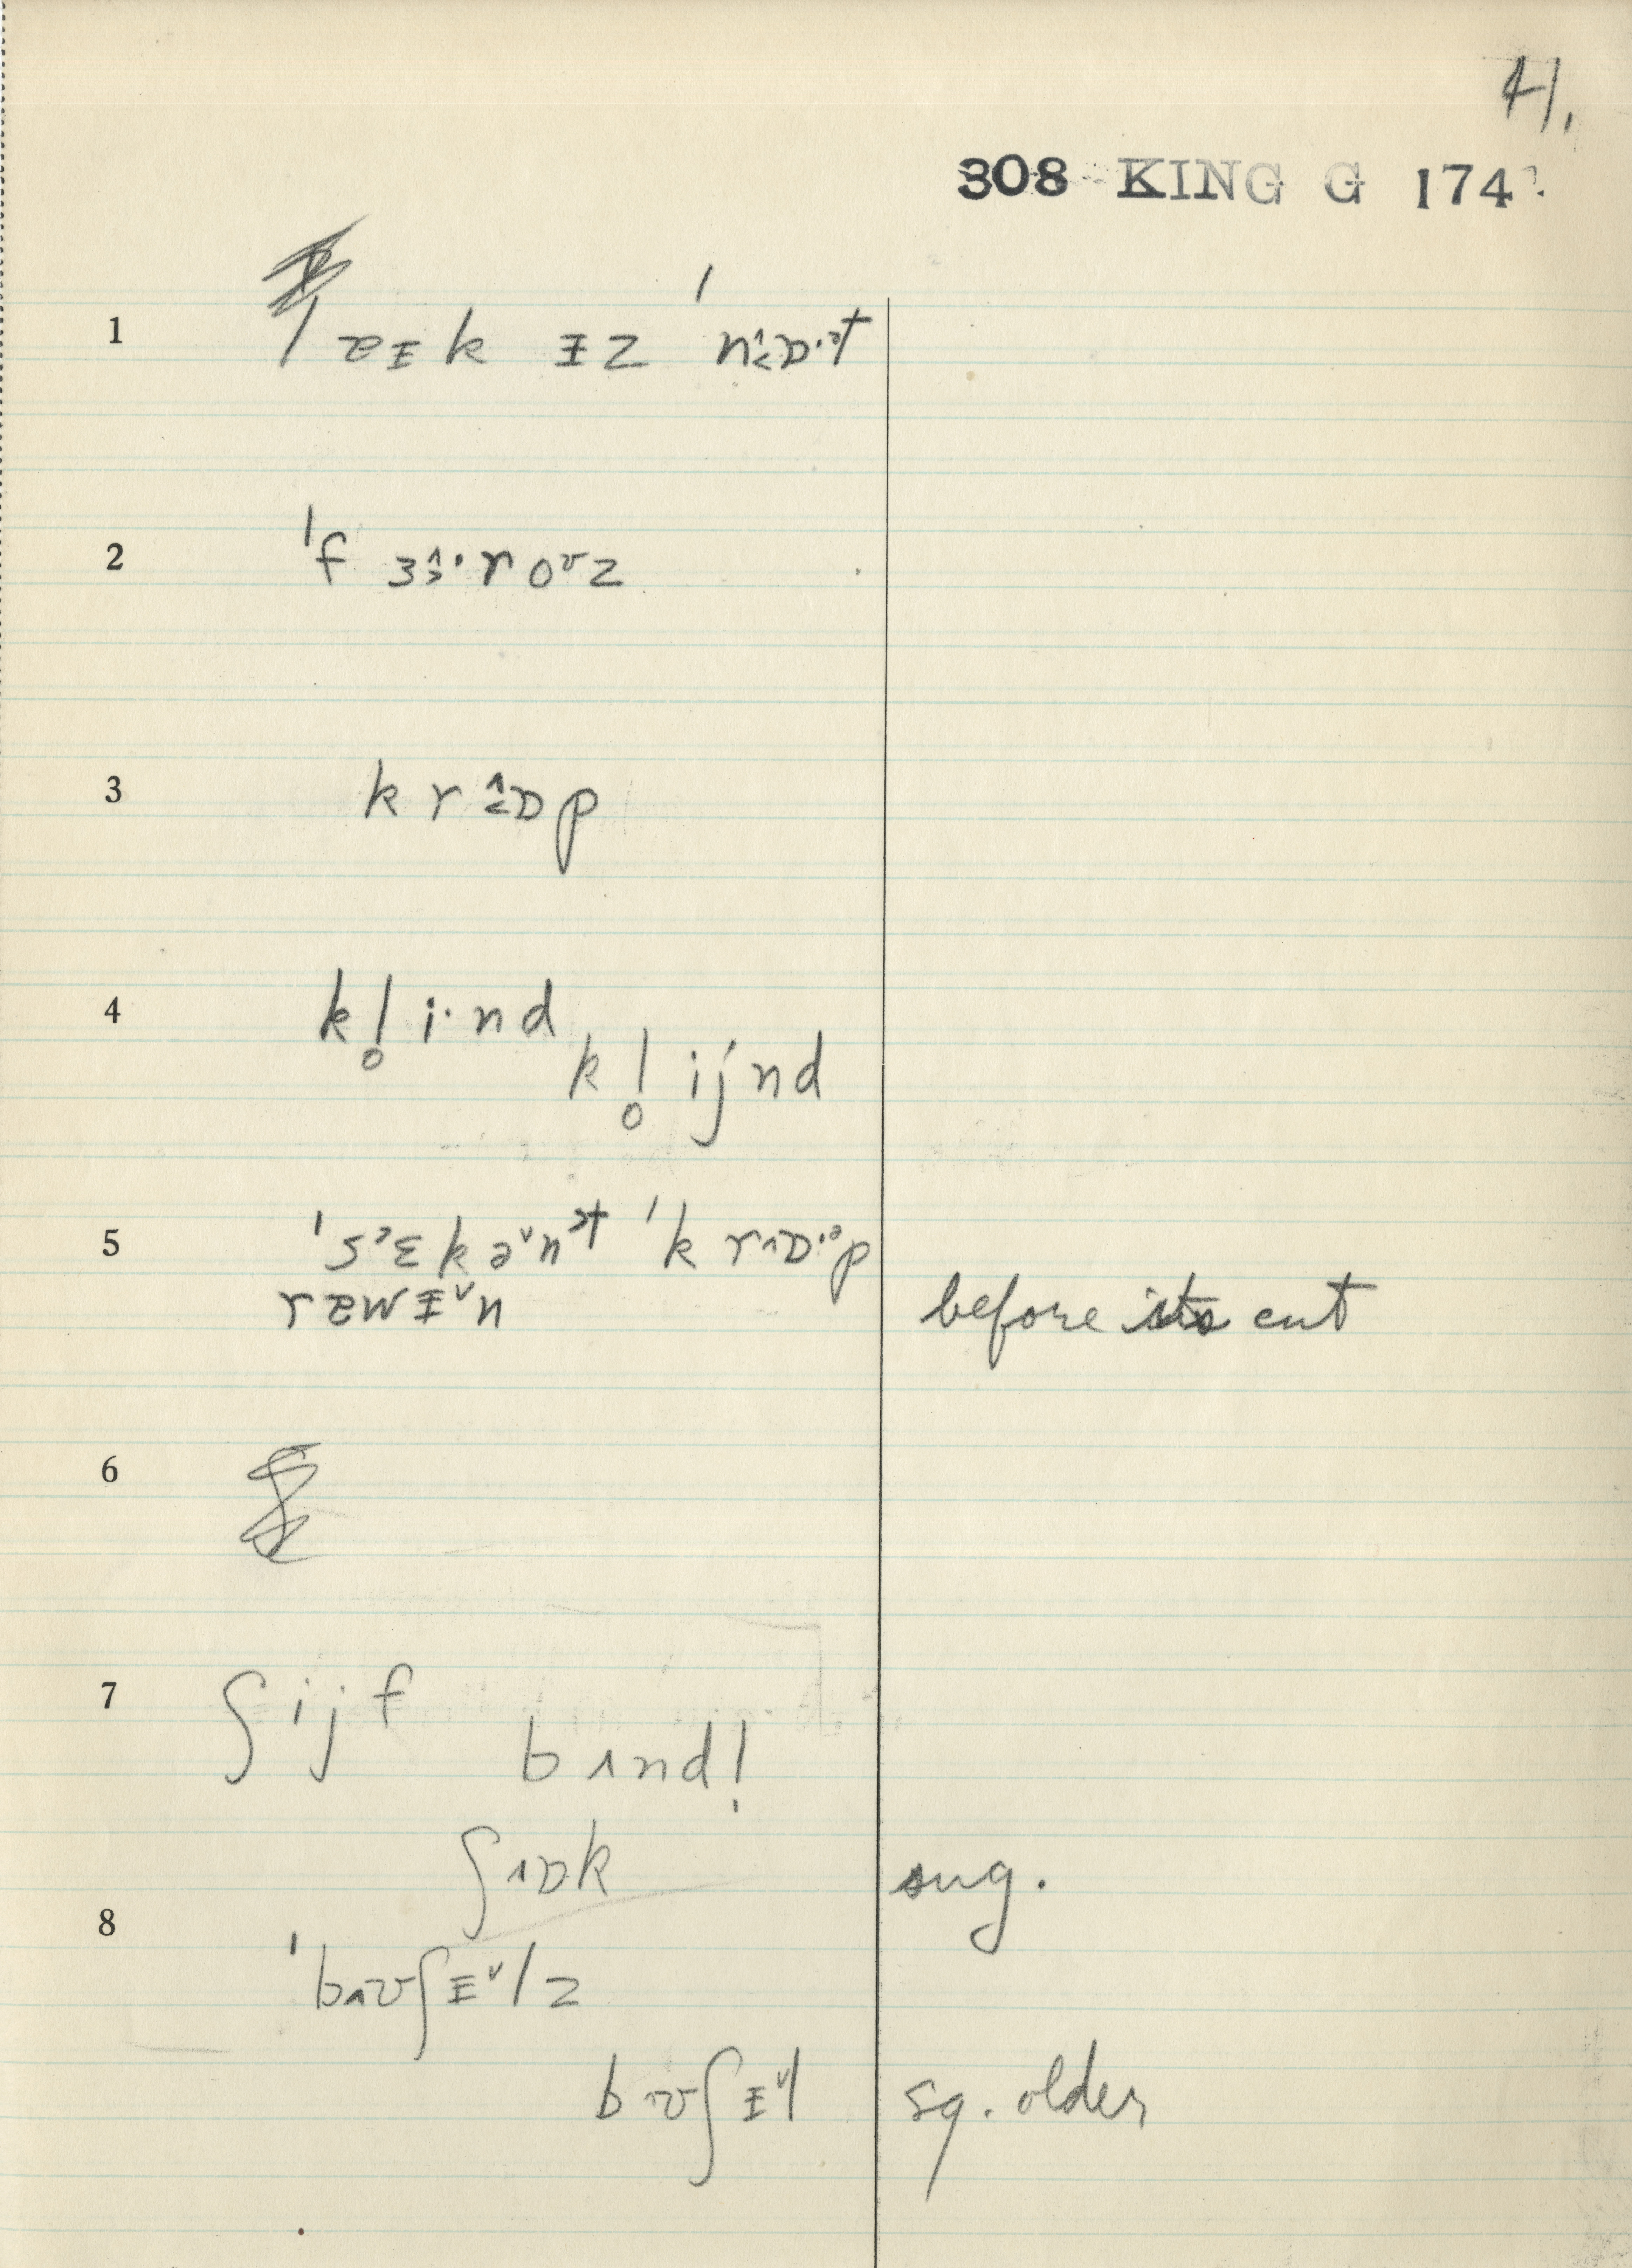 41.
308 KING G 174
1 lɐɪk ɪz ˈnʌɒ·ət
2 ˈf ɜ·r oᶷz
3 k r ʌɒ p
4 k l̥ i· n d
k l̥ i j n d
5 ˈs ɛ k ə n t ˈk r ʌɒ·ə p
r ɐ w ɪ n before its cut
6
7 ʃ i j f
b ʌ n d l̩
ʃ ʌɒ k sug.
8 ˈb ʌʊ ʃ ɪ l z
b ʌʊ ʃ ɪ l sg. older